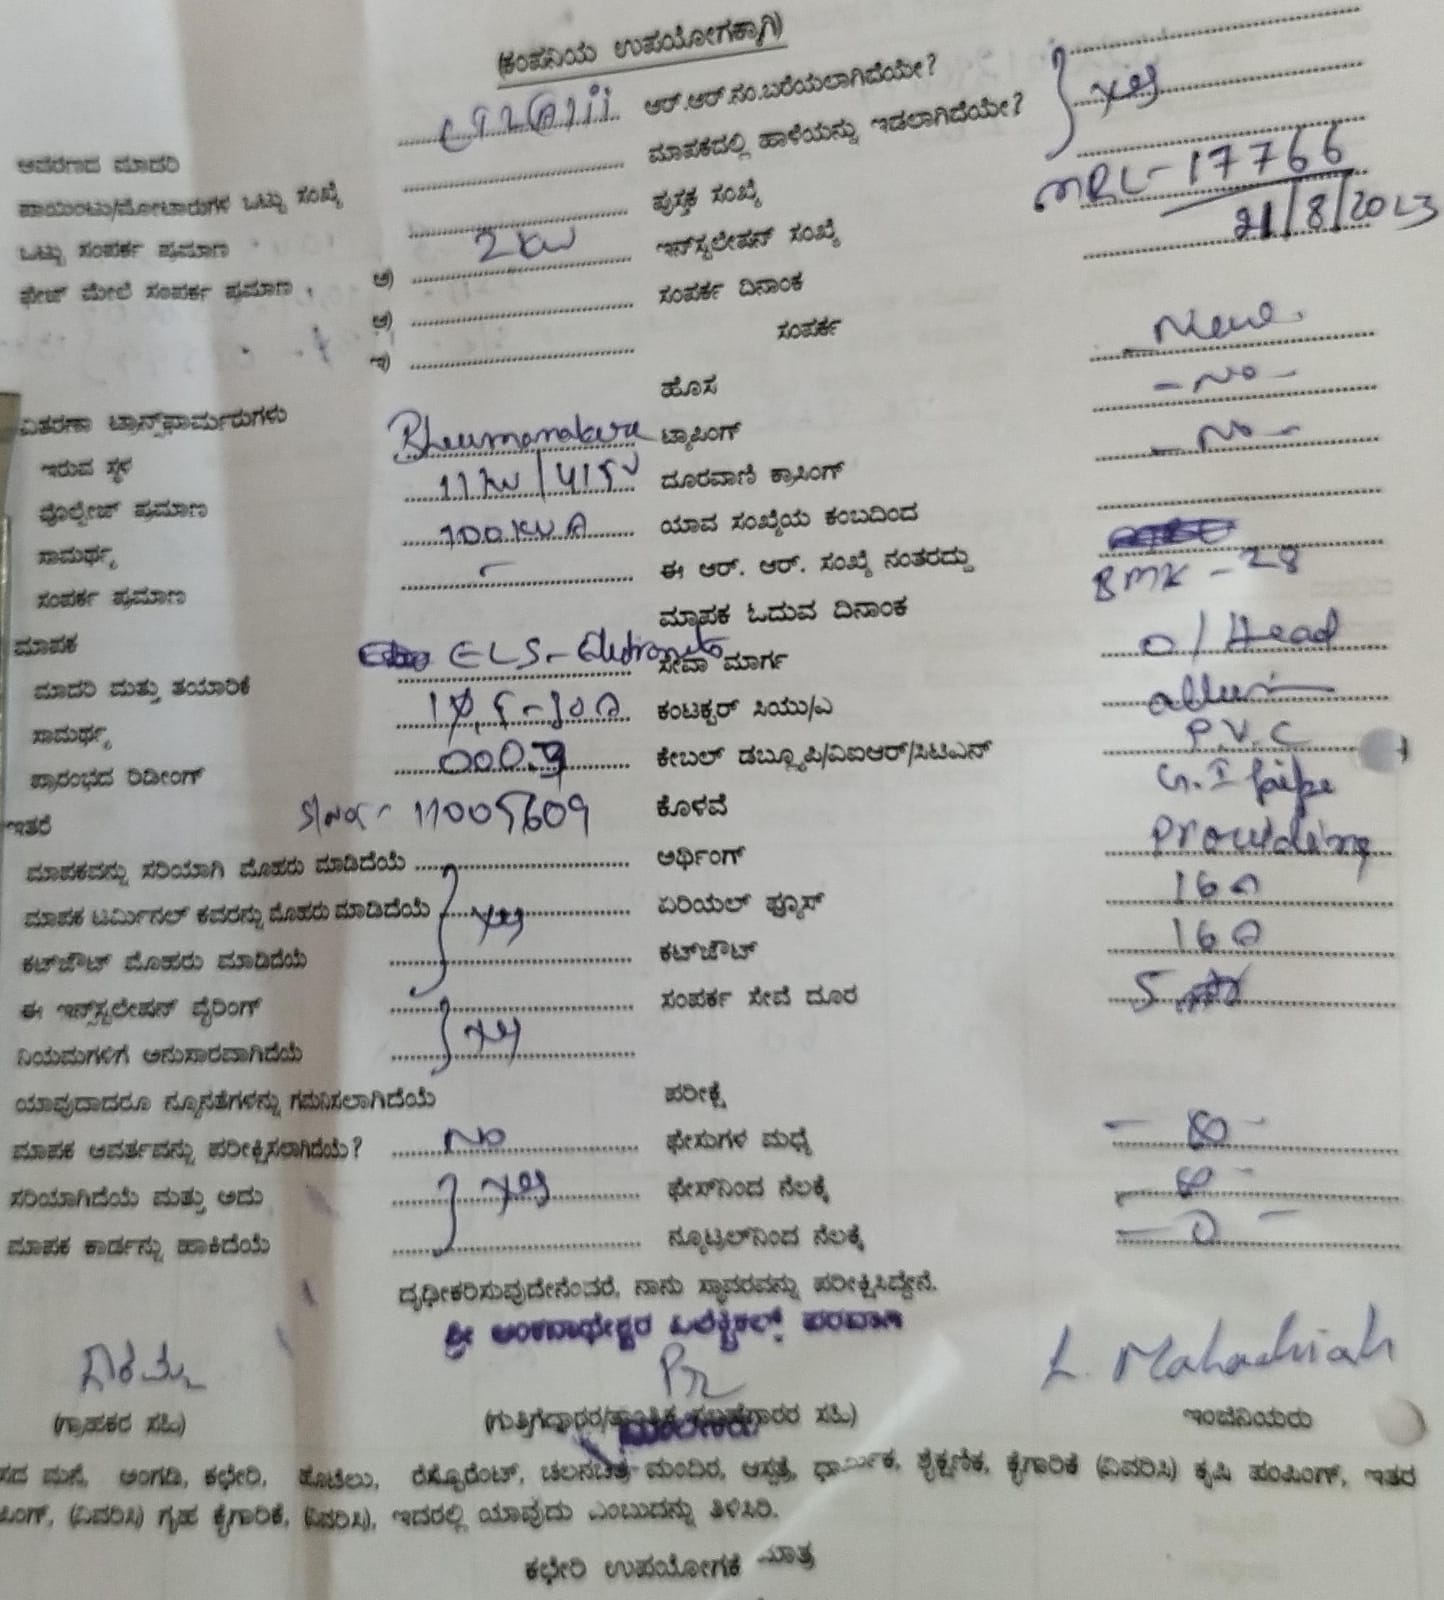 (ಕಂಪನಿಯ ಉಪಯೋಗಕ್ಕಾಗಿ)
ಆವರಣದ ಮಾದರಿ ಆರ್.ಆರ್.ನಂ.ಬರೆಯಲಾಗಿದೆಯೇ? } yes
ಪಾಯಿಂಟು/ಮೋಟಾರುಗಳ ಒಟ್ಟು ಸಂಖ್ಯೆ ಮಾಪಕದಲ್ಲಿ ಹಾಳೆಯನ್ನು ಇಡಲಾಗಿದೆಯೇ?
ಒಟ್ಟು ಸಂಪರ್ಕ ಪ್ರಮಾಣ 2 kw ಪುಸ್ತಕ ಸಂಖ್ಯೆ
ಫೇಜ್ ಮೇಲೆ ಸಂಪರ್ಕ ಪ್ರಮಾಣ ಅ) ಇನ್‌ಸ್ಟಲೇಷನ್ ಸಂಖ್ಯೆ MRL-17766
ಆ) ಸಂಪರ್ಕ ದಿನಾಂಕ 21/8/2023
ಇ) ಸಂಪರ್ಕ
ವಿತರಣಾ ಟ್ರಾನ್ಸ್‌ಫಾರ್ಮರುಗಳು ಹೊಸ New
ಇರುವ ಸ್ಥಳ ಟ್ಯಾಪಿಂಗ್ - No -
ವೋಲ್ಟೇಜ್ ಪ್ರಮಾಣ 11 kv / 415 v ದೂರವಾಣಿ ಕ್ರಾಸಿಂಗ್ - No -
ಸಾಮರ್ಥ್ಯ 100 KVA ಯಾವ ಸಂಖ್ಯೆಯ ಕಂಬದಿಂದ
ಸಂಪರ್ಕ ಪ್ರಮಾಣ - ಈ ಆರ್. ಆರ್. ಸಂಖ್ಯೆ ನಂತರದ್ದು BMK - 28
ಮಾಪಕ ಮಾಪಕ ಓದುವ ದಿನಾಂಕ
ಮಾದರಿ ಮತ್ತು ತಯಾರಿಕೆ ಸೇವಾ ಮಾರ್ಗ o/Head
ಸಾಮರ್ಥ್ಯ ಕಂಟಕ್ಟರ್ ಸಿಯು/ಎ
ಪ್ರಾರಂಭದ ರಿಡೀಂಗ್ ಕೇಬಲ್ ಡಬ್ಲ್ಯೂಪಿ/ವಿಐಆರ್/ಸಿಟಿಎಸ್ P.V.C
ಇತರೆ 11005609 ಕೊಳವೆ G.I pipe
ಮಾಪಕವನ್ನು ಸರಿಯಾಗಿ ಮೊಹರು ಮಾಡಿದೆಯೆ ಅರ್ಥಿಂಗ್ Providing
ಮಾಪಕ ಟರ್ಮಿನಲ್ ಕವರನ್ನು ಮೊಹರು ಮಾಡಿದೆಯೆ } yes ಏರಿಯಲ್ ಫ್ಯೂಸ್ 16A
ಕಟ್‌ಔಟ್ ಮೊಹರು ಮಾಡಿದೆಯೆ ಕಟ್‌ಔಟ್ 16A
ಈ ಇನ್‌ಸ್ಟಲೇಷನ್ ವೈರಿಂಗ್ } yes ಸಂಪರ್ಕ ಸೇವೆ ದೂರ 5
ನಿಯಮಗಳಿಗೆ ಅನುಸಾರವಾಗಿದೆಯೆ
ಯಾವುದಾದರೂ ನ್ಯೂನತೆಗಳನ್ನು ಗಮನಿಸಲಾಗಿದೆಯೆ ಪರೀಕ್ಷೆ
ಮಾಪಕ ಆವರ್ತವನ್ನು ಪರೀಕ್ಷಿಸಲಾಗಿದೆಯೆ? No ಫೇಸುಗಳ ಮಧ್ಯೆ
ಸರಿಯಾಗಿದೆಯೆ ಮತ್ತು ಅದು } yes ಫೇಸ್‌ನಿಂದ ನೆಲಕ್ಕೆ
ಮಾಪಕ ಕಾರ್ಡನ್ನು ಹಾಕಿದೆಯೆ ನ್ಯೂಟ್ರಲ್‌ನಿಂದ ನೆಲಕ್ಕೆ - 0 -
ದೃಢೀಕರಿಸುವುದೇನೆಂದರೆ, ನಾನು ಸ್ಥಾವರವನ್ನು ಪರೀಕ್ಷಿಸಿದ್ದೇನೆ.
ಶ್ರೀ ಅಂಕನಾಥೇಶ್ವರ ಎಲೆಕ್ಟ್ರಿಕಲ್ಸ್ ಪರವಾಗಿ
L. Mahadhiah
(ಗ್ರಾಹಕರ ಸಹಿ) (ಗುತ್ತಿಗೆದ್ದಾರರ/ತಾಂತ್ರಿಕ ಸಲಹೆಗಾರರ ಸಹಿ) ಇಂಜಿನಿಯರು
ಮಾಲೀಕರು
ಸದ ಮನೆ, ಅಂಗಡಿ, ಕಛೇರಿ, ಹೊಟೆಲು, ರೆಸ್ಟೊರೆಂಟ್, ಚಲನಚಿತ್ರ ಮಂದಿರ, ಆಸ್ಪತ್ರೆ, ಧಾರ್ಮಿಕ, ಶೈಕ್ಷಣಿಕ, ಕೈಗಾರಿಕೆ (ವಿವರಿಸಿ) ಕೃಷಿ ಪಂಪಿಂಗ್, ಇತರ
ಪಿಂಗ್, (ವಿವರಿಸಿ) ಗೃಹ ಕೈಗಾರಿಕೆ, (ವಿವರಿಸಿ), ಇದರಲ್ಲಿ ಯಾವುದು ಎಂಬುದನ್ನು ತಿಳಿಸಿರಿ.
ಕಛೇರಿ ಉಪಯೋಗಕೆ ಮಾತ್ರ